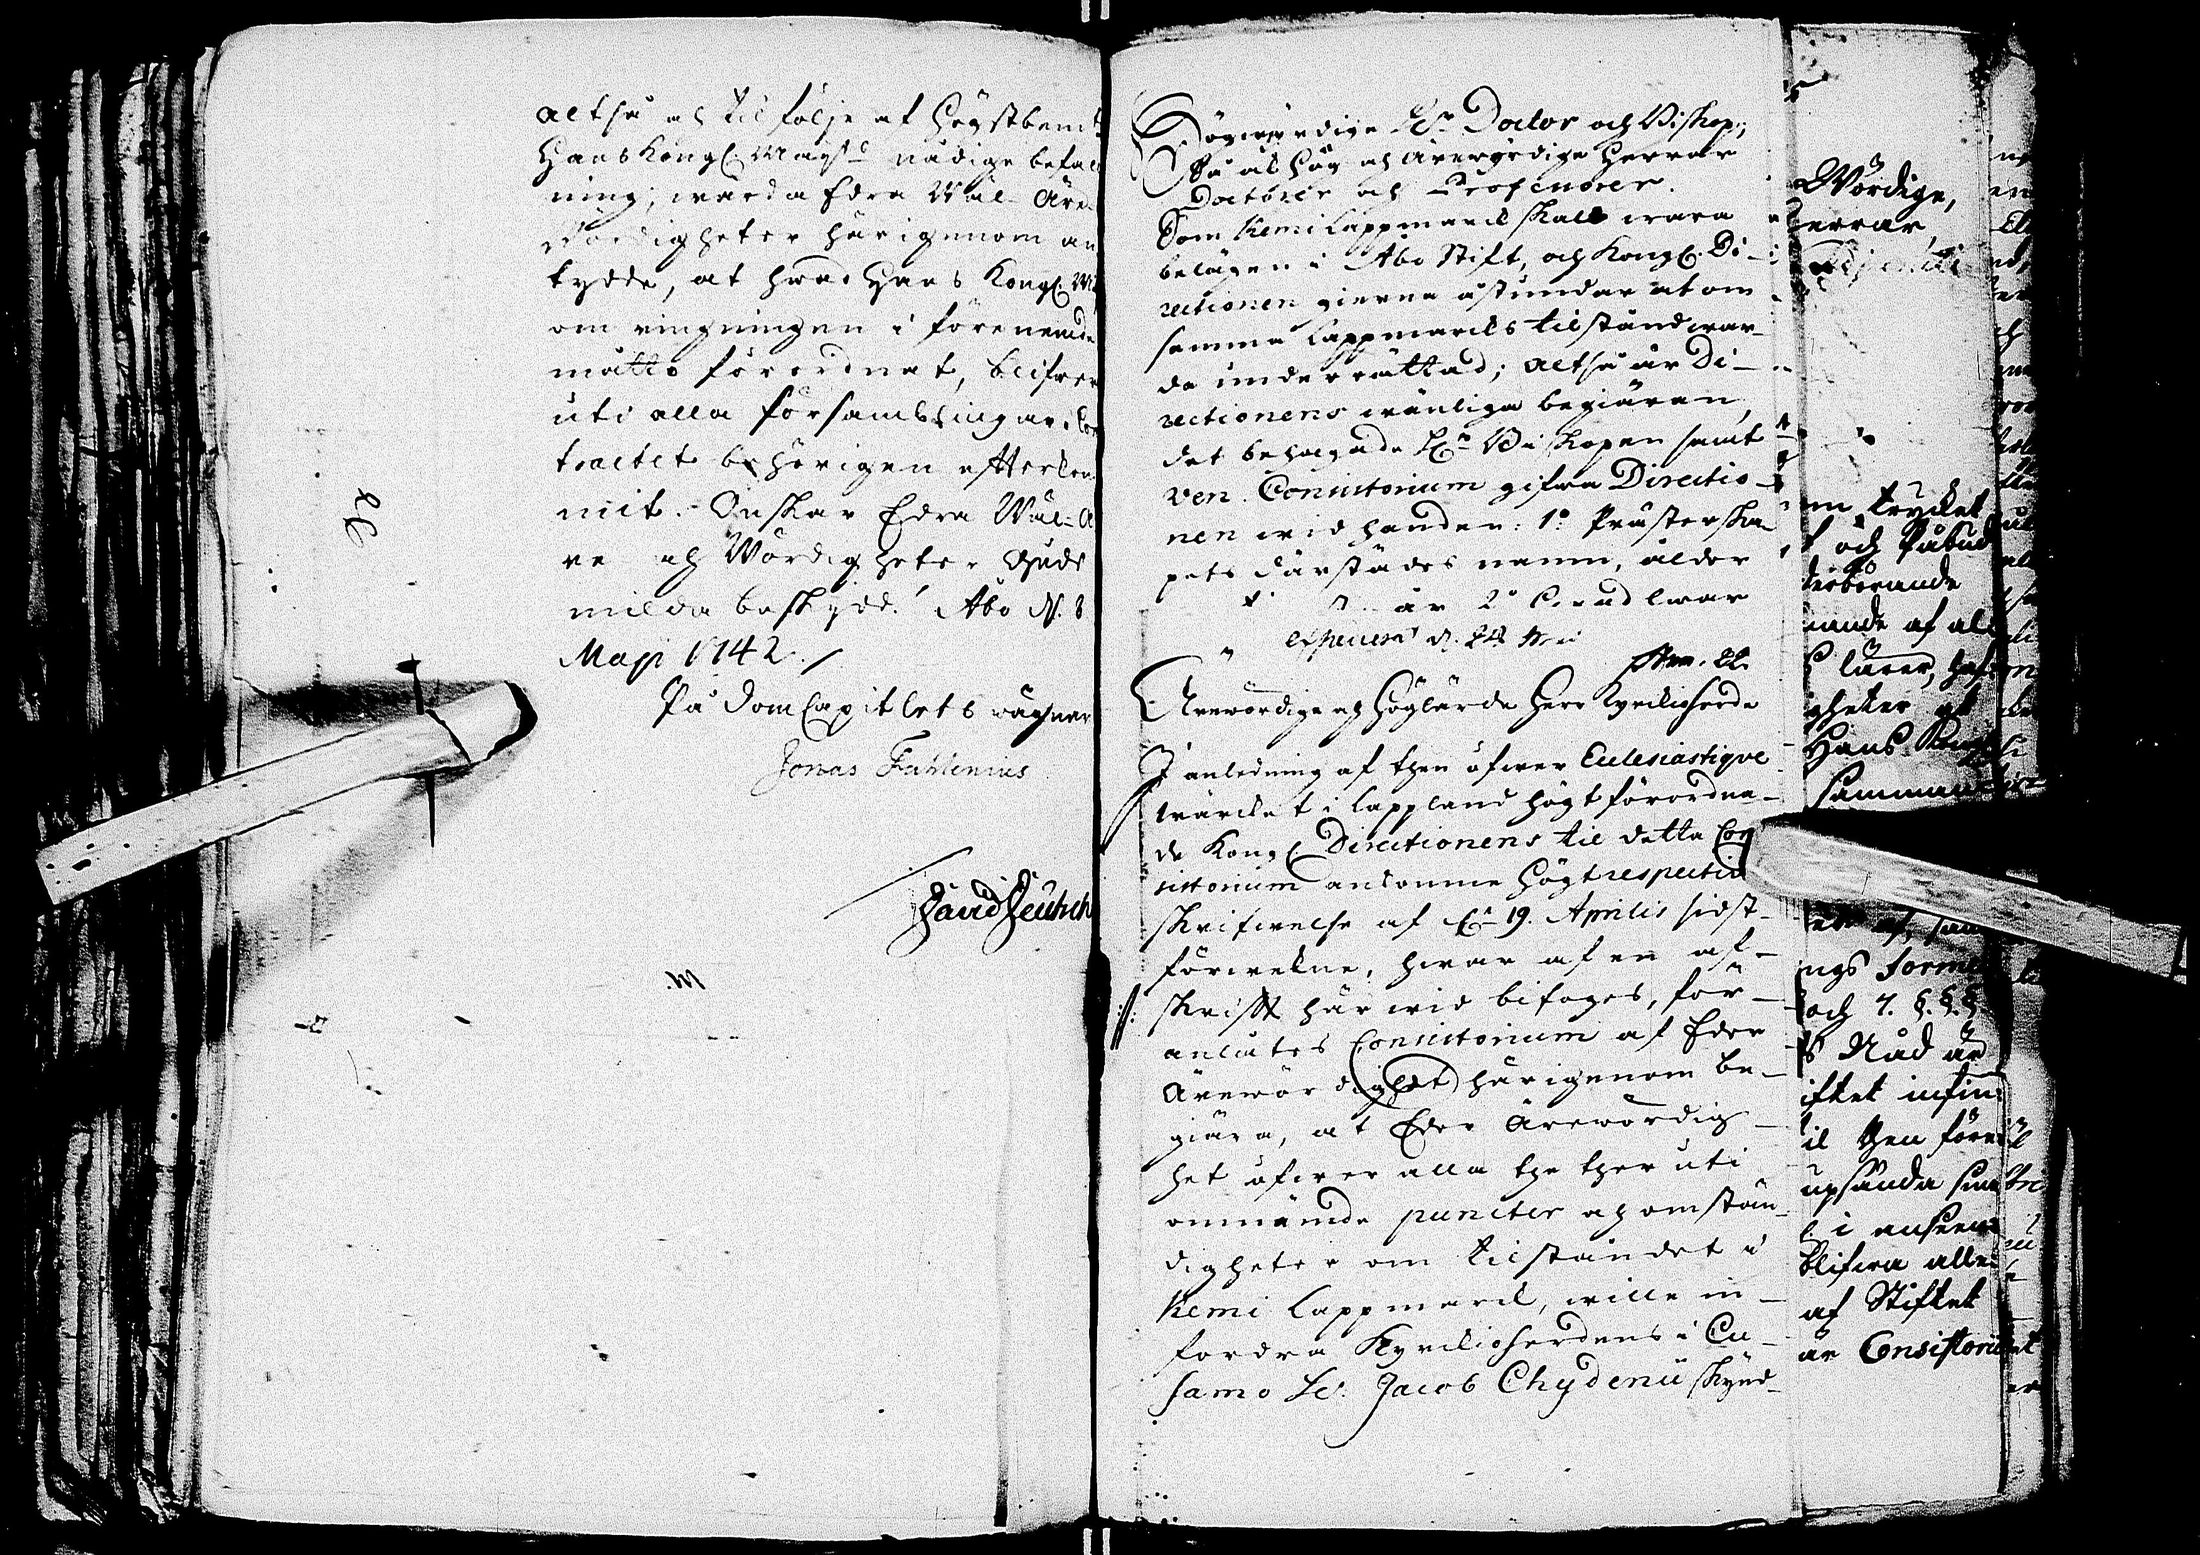 altså och til följe af högstbem:te
Hans Kongl. Maij:ts nådige befall
ning, warda Edra Wäl- Äre
Wördigheter härigenom an
tydde, at hwad Hans Kongl. M
om ringningen i förenemde
måtto förordnat, blifwer
uti alla församblingar i Con
tractet behörigen efterkom
mit. Önskar Edra Wäl- Ä
re och Wördigheter Guds
milda beskydd. Åbo d. 8
Maji 1742.
På DomCapitlets wägnar
Jonas Fahlenius
David Deutsch
Högwördige H:r Doctor och Biskop,
Så ock Hög och Ärewyrdige Herrar
Doctorer och Professorer.
Som Kemi Lappmarck skall wara
belägen i Åbo Stift, och Kongl. Di-
rectionen gierna åstundar at om
samma Lappmarcks tilstånd war-
da underrättad; altså är Di-
rectionens wänliga begiäran,
det behagade H:r Biskopen samt
Ven. Consistorium gifwa Directio-
nen wid handen: 1:o Prästerska-
pets därstädes namn, ålder
år 2:o
Ärewördige och Höglärde Herr Kyrckioherde
I anledning af then öfwer Ecclesiastique
wärcket i Lappland högt förordna-
de Kongl. Directionens til detta Con
sistorium ankomne högtrespective
skrifwelse af d. 19. Aprilis sidst-
förwekne, hwar af en af-
skrifft här wid bifogas, för-
anlåtes Consistorium af Eder
Ärewördighet härigenom be-
giära, at Eder Ärewördig-
het öfwer alla the ther uti
omnämde puncter och omstän-
digheter om tilståndet i
Kemi Lappmarck, wille in-
fordra Kyrckioherdens i Cu-
samo H:r Jacob Chydenii skynd-
Wördige,
errar
m trycket
och Påbud
mande af all
lärer, haf
gheter at
Hans Kongl
samman
ngs form
och 7. §.§.§
Nåd är
iftet infin
il then före
upsända sin
i anseen
blifwa alle
af Stiftet
är Consistorii